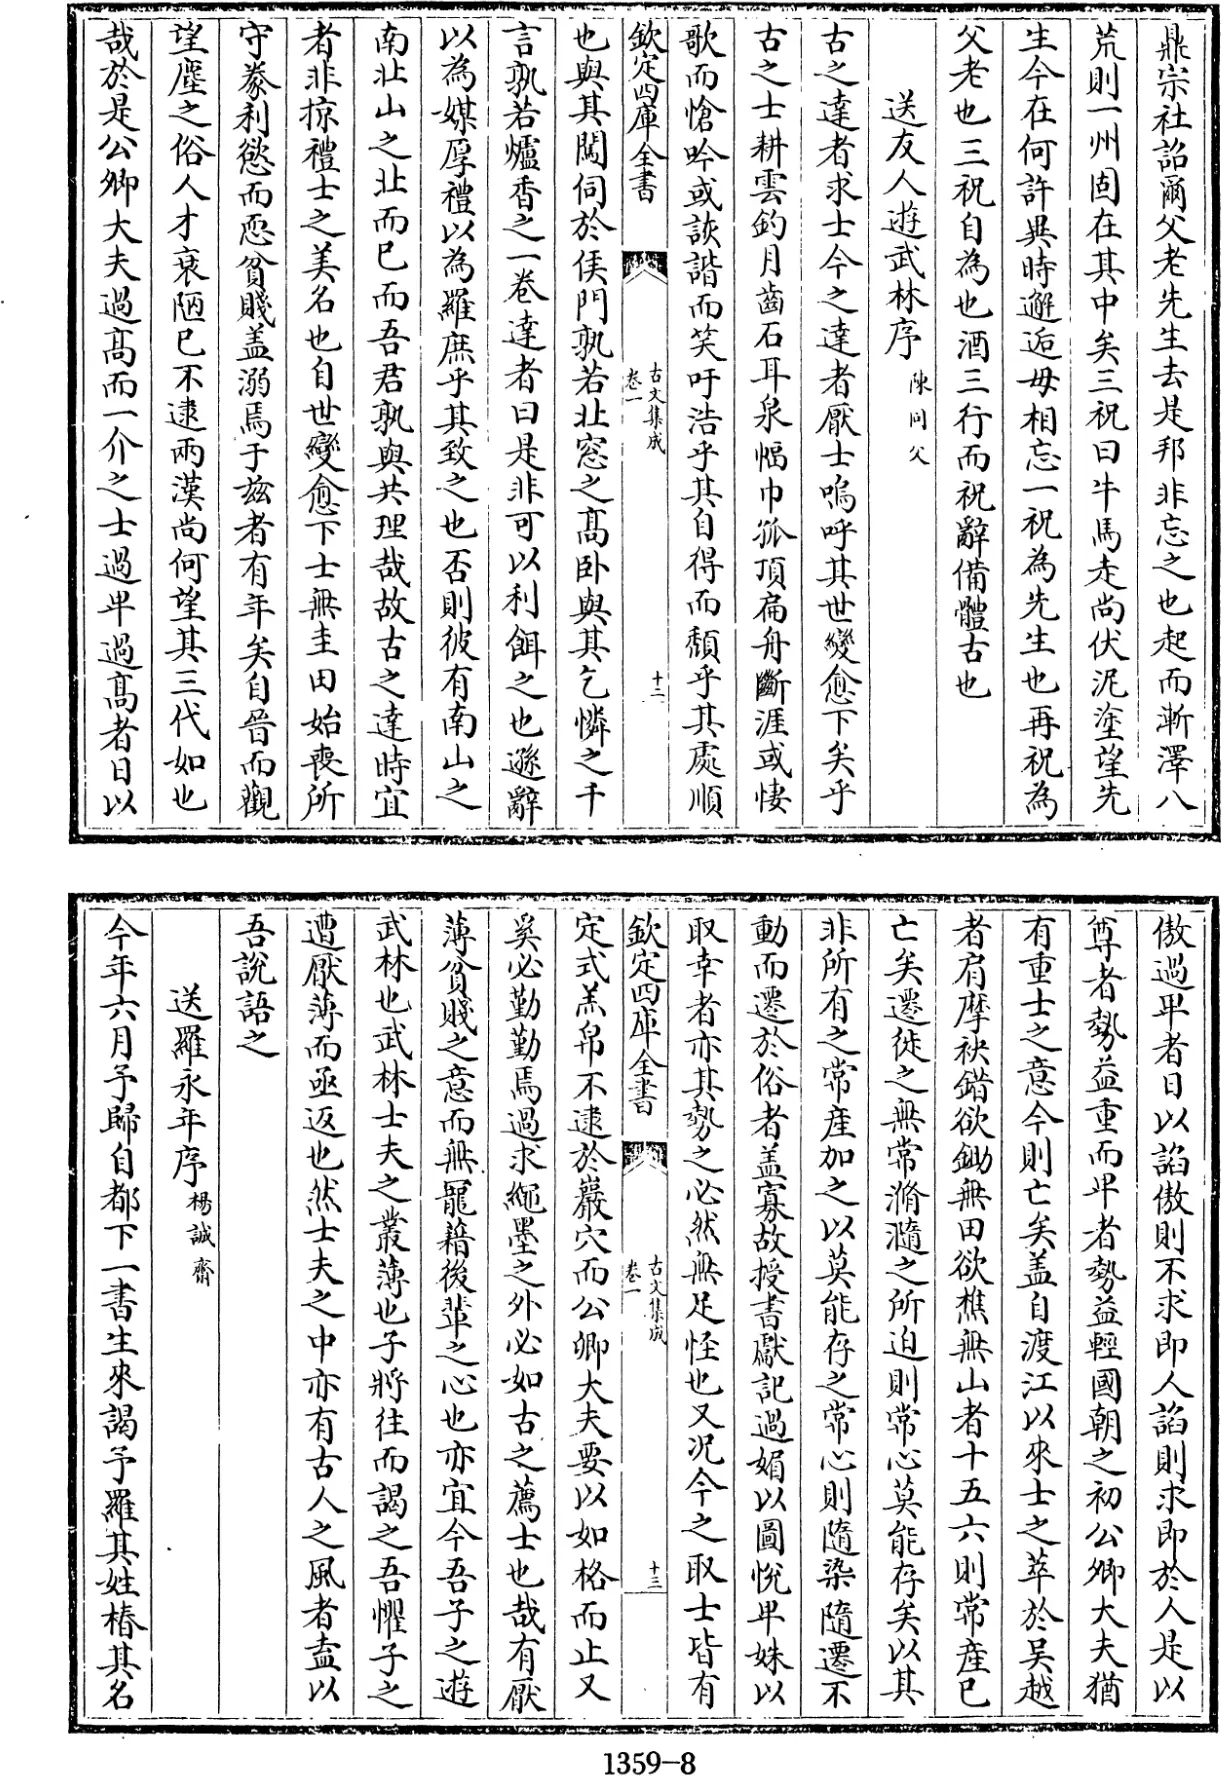 鼎宗社詔爾父老先生去是邦非忘之也起而漸澤八
荒則一州固在其中矣三祝曰牛馬走尚伏泥塗望先
生今在何許異時邂逅毋相忘一祝為先生也再祝為
父老也三祝自為也酒三行而祝辭備體古也
送友人遊武林序 陳同父
古之達者求士今之達者厭士嗚呼其世變愈下矣乎
古之士耕雲釣月齒石耳泉幅巾孤頂扁舟斷涯或悽
歌而愴吟或詼諧而笑吁浩乎其自得而頽乎其處順
欽定四庫全書
古文集成
卷一
十二
也與其闖伺於侯門孰若北窓之高卧與其乞憐之千
言孰若爐香之一卷達者曰是非可以利餌之也遜辭
以為媒厚禮以為羅庶乎其致之也否則彼有南山之
南北山之北而已而吾君孰與共理哉故古之達時宜
者非掠禮士之美名也自世變愈下士無圭田始喪所
守豢利慾而恧貧賤盖溺焉于兹者有年矣自晉而觀
望塵之俗人才衰陋已不逮兩漢尚何望其三代如也
哉於是公卿大夫過高而一介之士過卑過高者日以
傲過卑者日以諂傲則不求即人諂則求即於人是以
尊者勢益重而卑者勢益輕國朝之初公卿大夫猶
有重士之意今則亡矣盖自渡江以來士之萃於吴越
者肩摩袂錯欲鋤無田欲樵無山者十五六則常産已
亡矣遷徙之無常滫瀡之所迫則常心莫能存矣以其
非所有之常産加之以莫能存之常心則隨染隨遷不
動而遷於俗者盖寡故授書獻記過媚以圖悅卑姝以
取幸者亦其勢之必然無足怪也又况今之取士皆有
欽定四庫全書
古文集成
卷一
十三
定式羔帛不逮於巖穴而公卿大夫要以如格而止又
奚必勤勤焉過求繩墨之外必如古之薦士也哉有厭
薄貧賤之意而無寵藉後輩之心也亦宜今吾子之遊
武林也武林士夫之叢薄也子將往而謁之吾懼子之
遭厭薄而亟返也然士夫之中亦有古人之風者盍以
吾說語之
送羅永年序 楊誠齋
今年六月予歸自都下一書生來謁予羅其姓椿其名
1359-8